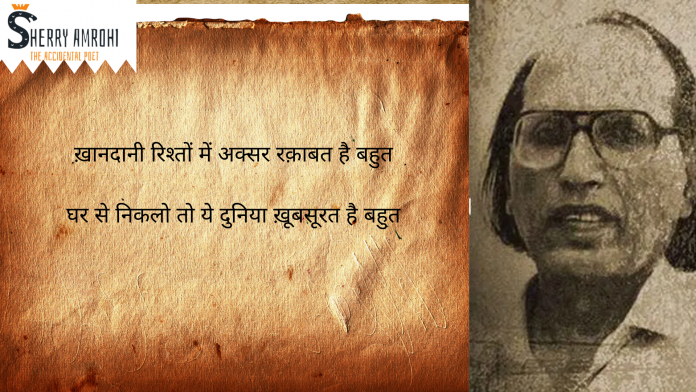 SHERRY AMROHI
THE ACCIDENTAL POET
ख़ानदानी रिश्तों में अक्सर रक़ाबत है बहुत
घर से निकलो तो ये दुनिया ख़ूबसूरत है बहुत